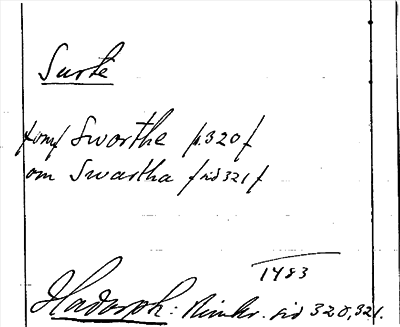 Surte
/omf Sworthe /s.320/
om Swartha /sid 321/
1483
Hadorph: Rimkr. sid 320, 321.